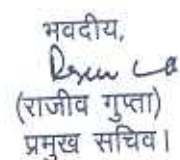 भवदीय,
(राजीव गुप्ता)
प्रमुख सचिव।